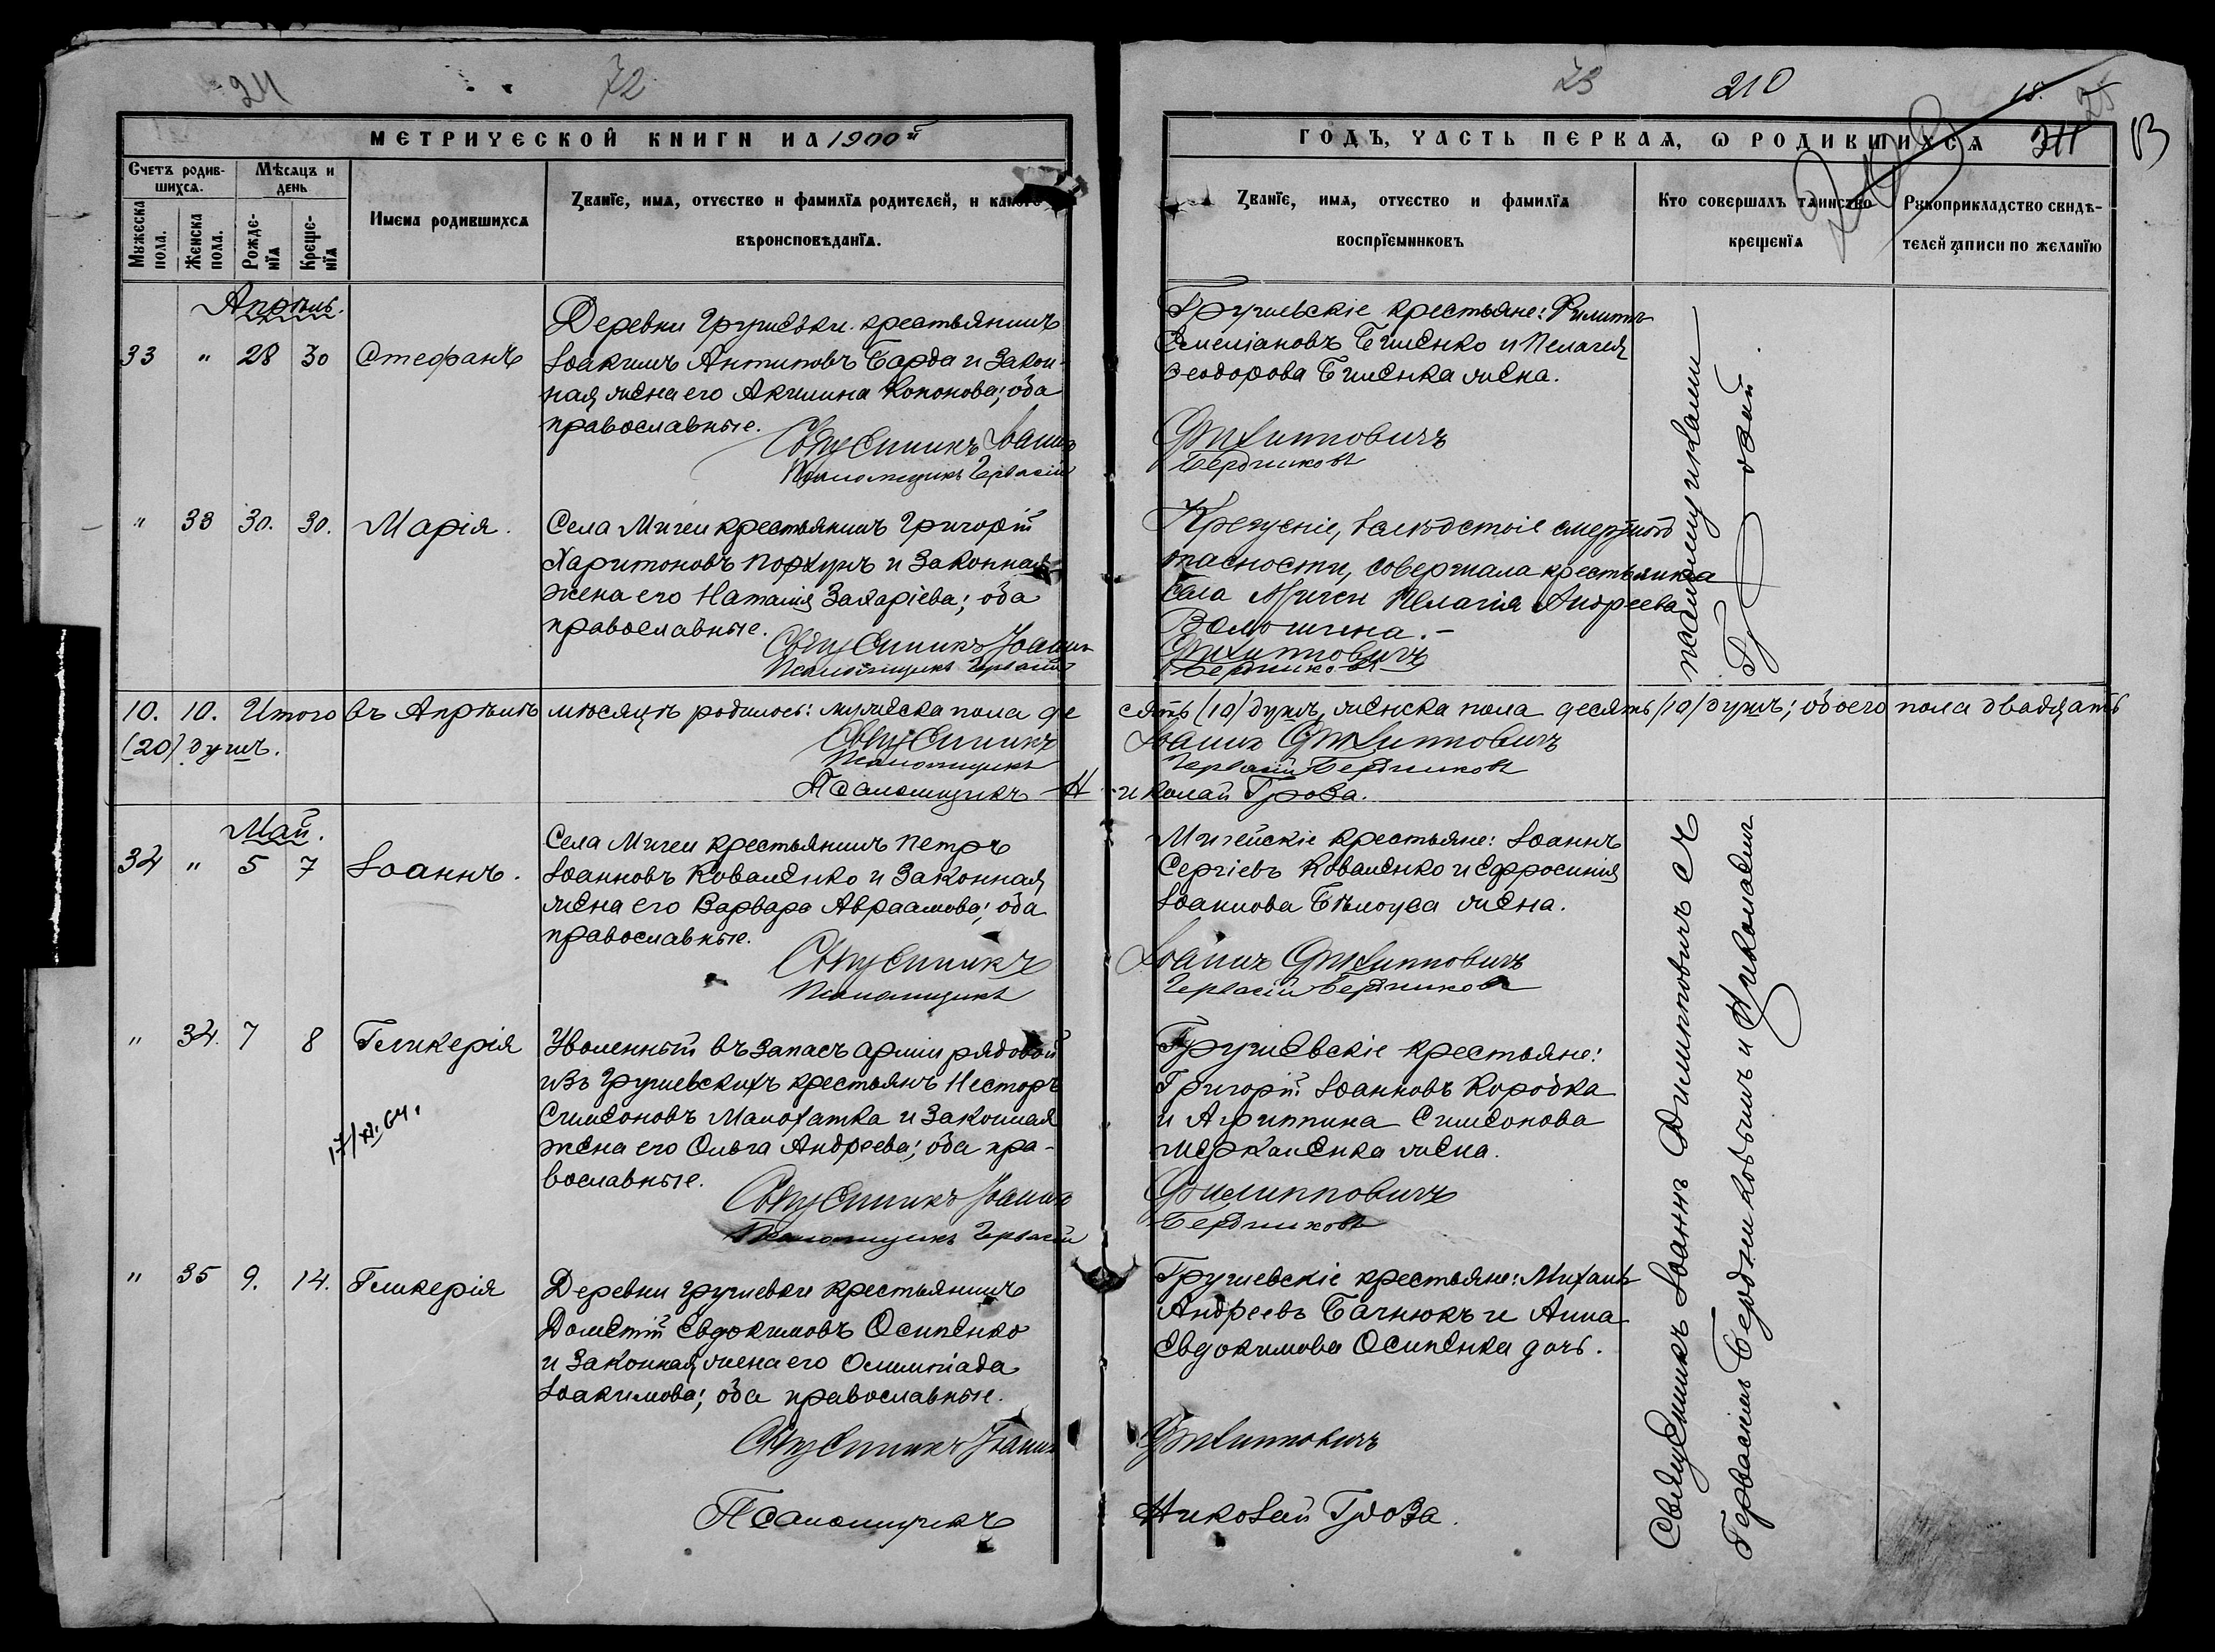 24
72
МЕТРИЧЕСКОЙ КНИГИ НА 1900й
Счетъ родив-
шихся.
Мѣсяцъ и
день
Мужеска
пола.
Женска
пола.
Рожде-
нїя
Креще-
нїя
Имена родившихся
Званїе, имя, отчество и фамилїя родителей, и какого
вѣроисповѣданїя.
Апрѣль.
33 " 28 30 Стефанъ
Деревни Грушевки крестьянинъ
Іоакимъ Антиповъ Барда и закон-
ная жена его Акилина Кононова; оба
православные.
Священникъ Іоаннъ
Псаломщикъ Гервасій
" 33 30. 30. Марія.
Села Мигеи крестьянинъ Григорій
Харитоновъ Порхунъ и законная
жена его Наталія Захаріева; оба
православные.
Священникъ Іоаннъ
Псаломщикъ Гервасій
10. 10. Итого въ Апрѣлѣ мѣсяцѣ родилось: мужеска пола де
(20) душъ.
Священникъ
Псаломщикъ
Псаломщикъ Н
Май.
34 " 5 7 Іоаннъ.
Села Мигеи крестьянинъ Петръ
Іоанновъ Коваленко и законная
жена его Варвара Авраамова; оба
православные.
Священникъ
Псаломщикъ
" 34. 7 8 Гликерія
17/XI.64.
Уволенный въ запасъ арміи рядовой
изъ Грушевскихъ крестьянъ Несторъ
Симеоновъ Малохатка и законная
жена его Ольга Андреева; оба пра-
вославные.
Священникъ Іоаннъ
Псаломщикъ Гервасій
" 35 9. 14. Гликерія
Деревни Грушевки крестьянинъ
Дометій Евдокимовъ Осипенко
и законная жена его Олимпіада
Іоакимова; оба православные.
Священникъ Іоаннъ
Псаломщикъ
73
210
18.
25
ГОДЪ, ЧАСТЬ ПЕРВАЯ, Ѡ РОДИВШИХСЯ
311
13
Званїе, имя, отчество и фамилїя
воспрїемниковъ
Кто совершалъ таинство
крещенїя
Рукоприкладство свидѣ-
телей записи по желанїю
Грушевскіе крестьяне: Филиппъ
Емеліановъ Биленко и Пелагея
Ѳеодорова Биленка жена.
Филипповичъ
Бердниковъ
Крещеніе, вслѣдствіе смертной
опасности, совершала крестьянка
села Мигеи Пелагія Андреева
Волошина.-
Филипповичъ
Бердниковъ
сять (10) душъ, женска пола десять (10) душъ; обоего пола двадцать
Іоаннъ Филипповичъ
Гервасій Бердниковъ
иколай Гроза.
Мигейскіе крестьяне: Іоаннъ
Сергіевъ Коваленко и Ефросинія
Іоаннова Бѣлоуса жена.
Іоаннъ Филипповичъ
Гервасій Бердниковъ
Грушевскіе крестьяне:
Григорій Іоанновъ Коробка
и Агриппина Симеонова
жена.
Филипповичъ
Бердниковъ
Грушевскіе крестьяне: Михаилъ
Андреевъ Багнюкъ и Анна
Евдокимова Осипенка дочь.
Филипповичъ
Николай Гроза.
Священникъ Іоаннъ Филипповичъ съ псаломщиками
Гервасіемъ Бердниковымъ и Николаемъ Грозой.